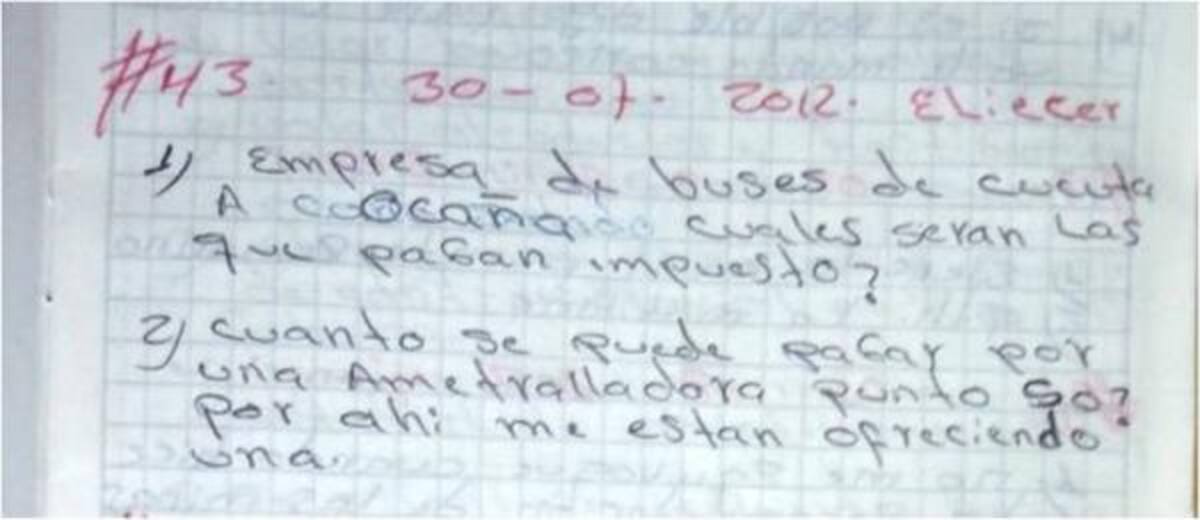 #43. 30-07. 2012. Eliecer
1) Empresa de buses de cucuta
A Ocaña cuales seran Las
que pagan impuesto?
2) cuanto se puede pagar por
una Ametralladora punto 50?
por ahi me estan ofreciendo
una.